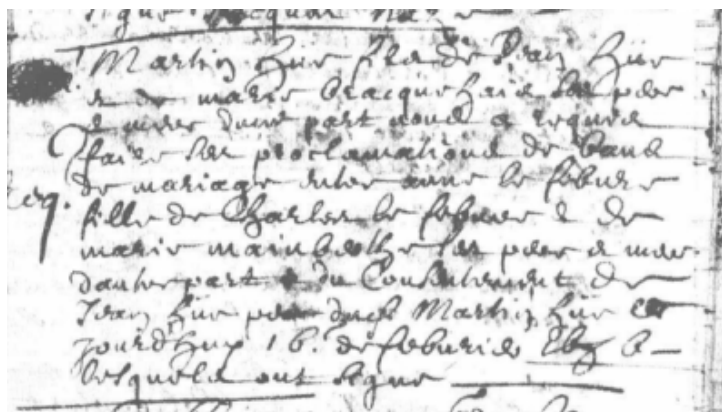 signe Jacques
Martin hüe fils de Jean hüe
& de marie bracquehais ses pere
& mere dune part nous a requis
faire les proclamations de bans
de mariage entre anne le febure
fille de Charles le febure & de
marie mainbethe ses pere & mere
dautre part & du Consentement de
Jean hüe pere dudt Martin hüe ce
jourdhuy 16. de feburier
lesquels ont signe